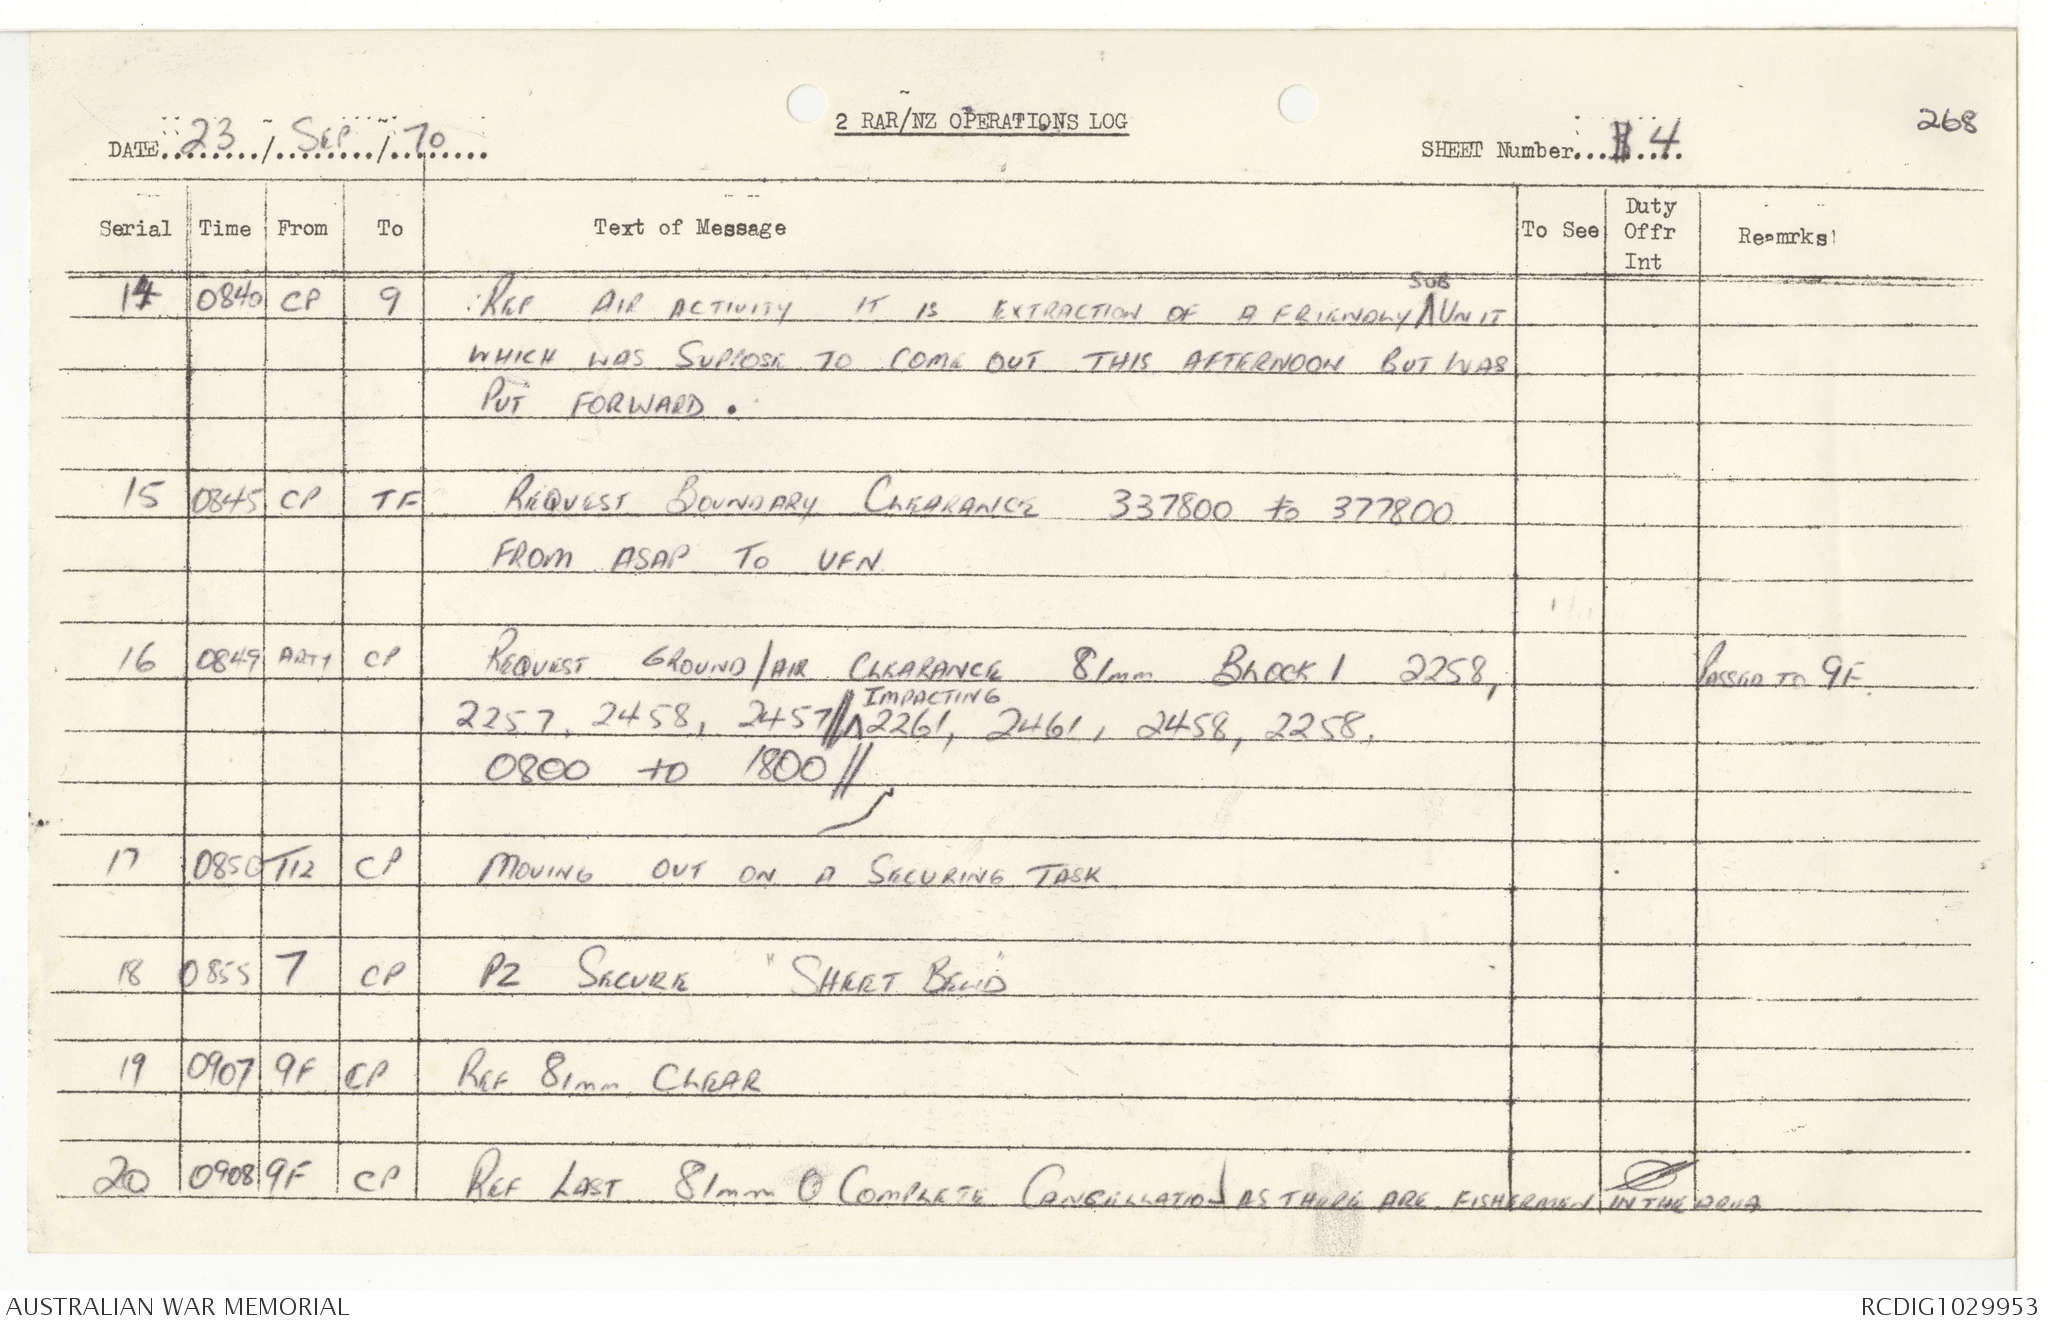 268
2 RAR/NZ OPERATIONS LOG
DATE 23 / Sep / 70
SHEET Number 4
Serial Time From To Text of Message To See Duty Offr Int Reamrks
14 0840 CP 9 REP AIR ACTIVITY IT IS EXTRACTION OF A FRIENDLY SUB UNIT
WHICH WAS SUPPOSE TO COME OUT THIS AFTERNOON BUT WAS
PUT FORWARD.
15 0845 CP TF REQUEST BOUNDARY CLEARANCE 337800 to 377800
FROM ASAP TO UFN
16 0849 ARTY CP REQUEST GROUND/AIR CLEARANCE 81mm BLOCK 1 2258, PASSED TO 9F.
2257, 2458, 2457// IMPACTING 2261, 2461, 2458, 2258.
0800 to 1800//
17 0850 T12 CP MOVING OUT ON A SECURING TASK
18 0855 7 CP P2 SECURE "SHEET BEND"
19 0907 9F CP REF 81mm CLEAR
20 0908 9F CP REF LAST 81mm COMPLETE CANCELLATION AS THERE ARE FISHERMEN IN THE AREA
AUSTRALIAN WAR MEMORIAL
RCDIG1029953